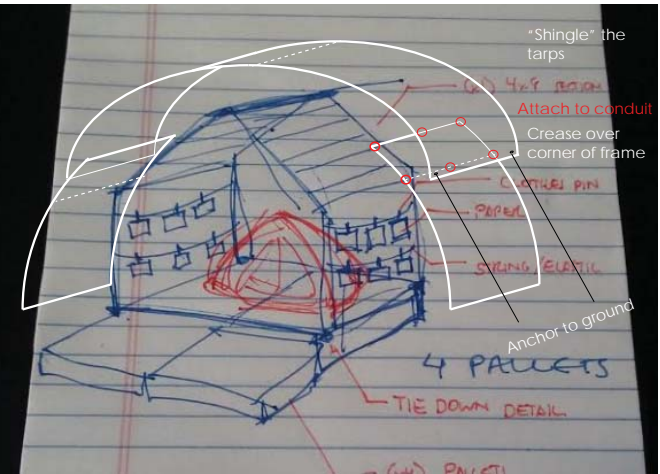 “Shingle” the
tarps
SECTION
Attach to conduit
Crease over
corner of frame
CLOTHES PIN
PAPER
STRING/ELASTIC
Anchor to ground
4 PALLETS
TIE DOWN DETAIL